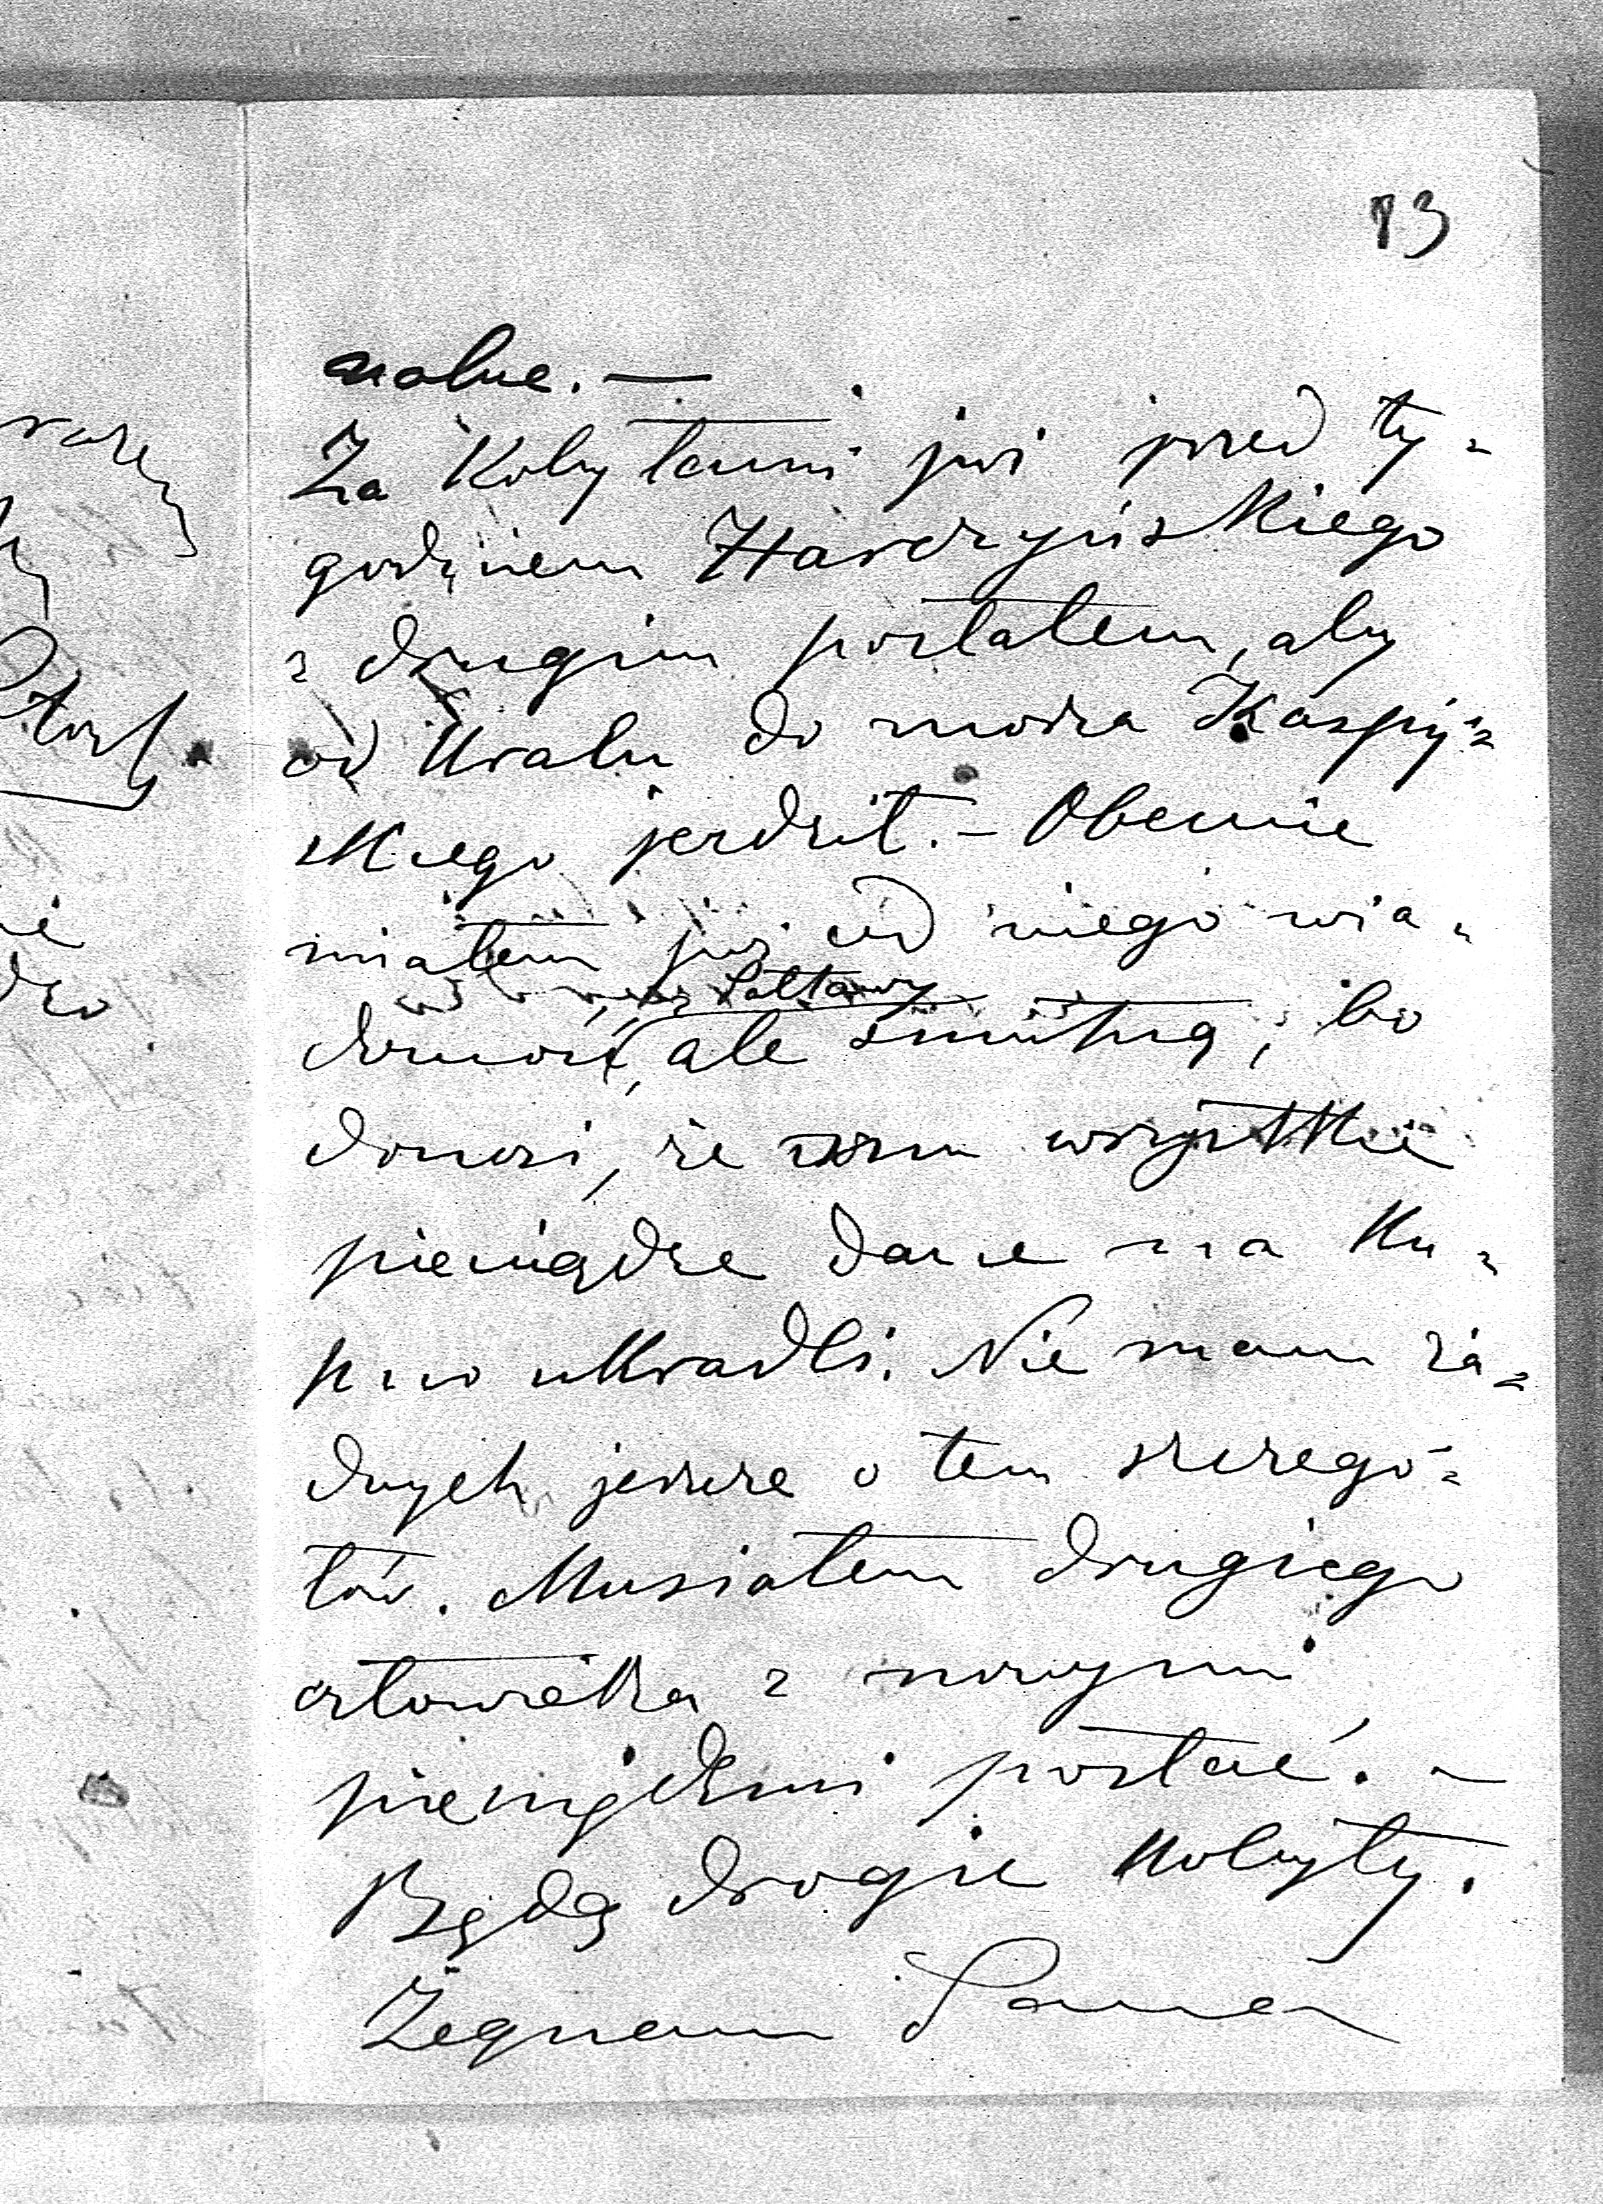 83
Za Kobyłami już przed ty-
godniem Harczyńskiego
z drugim posłałem, aby
od Uralu do morza Kaspij-
skiego jeździł. – Obecnie
miałem już od niego wia-
z Połtawy
domość, ale smutną, bo
donosi, że mu wszystkie
pieniądze dane na ku-
pno ukradli. Nie mam ża-
dnych jeszcze o tem szczegó-
łów. Musiałem drugiego
człowieka z nowymi
pieniędzmi posłać. –
Będą drogie kobyły.
Żegnam Pana